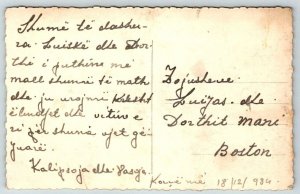 Shumë të dashu-
ra. Luiskë dhe Dor
thë i puthime me
mall shumë të madh
dhe ju urojmë
dhe vitin e
ri për shumë vjet gë
zuarë.
Kaliroja dhe Vasge.
Zojushave
Luizas. dhe
Dorthit Mani
Boston
Korçë më 18/12/934